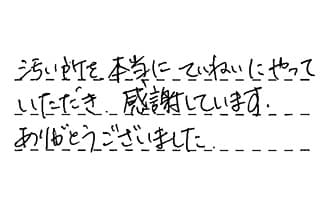 汚い所を本当にていねいにやって
いただき、感謝しています。
ありがとうございました。